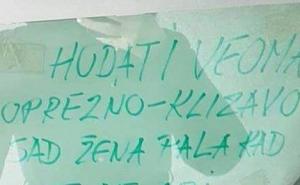 HODATI VEOMA
OPREZNO-KLIZAVO
SAD ŽENA PALA KAD